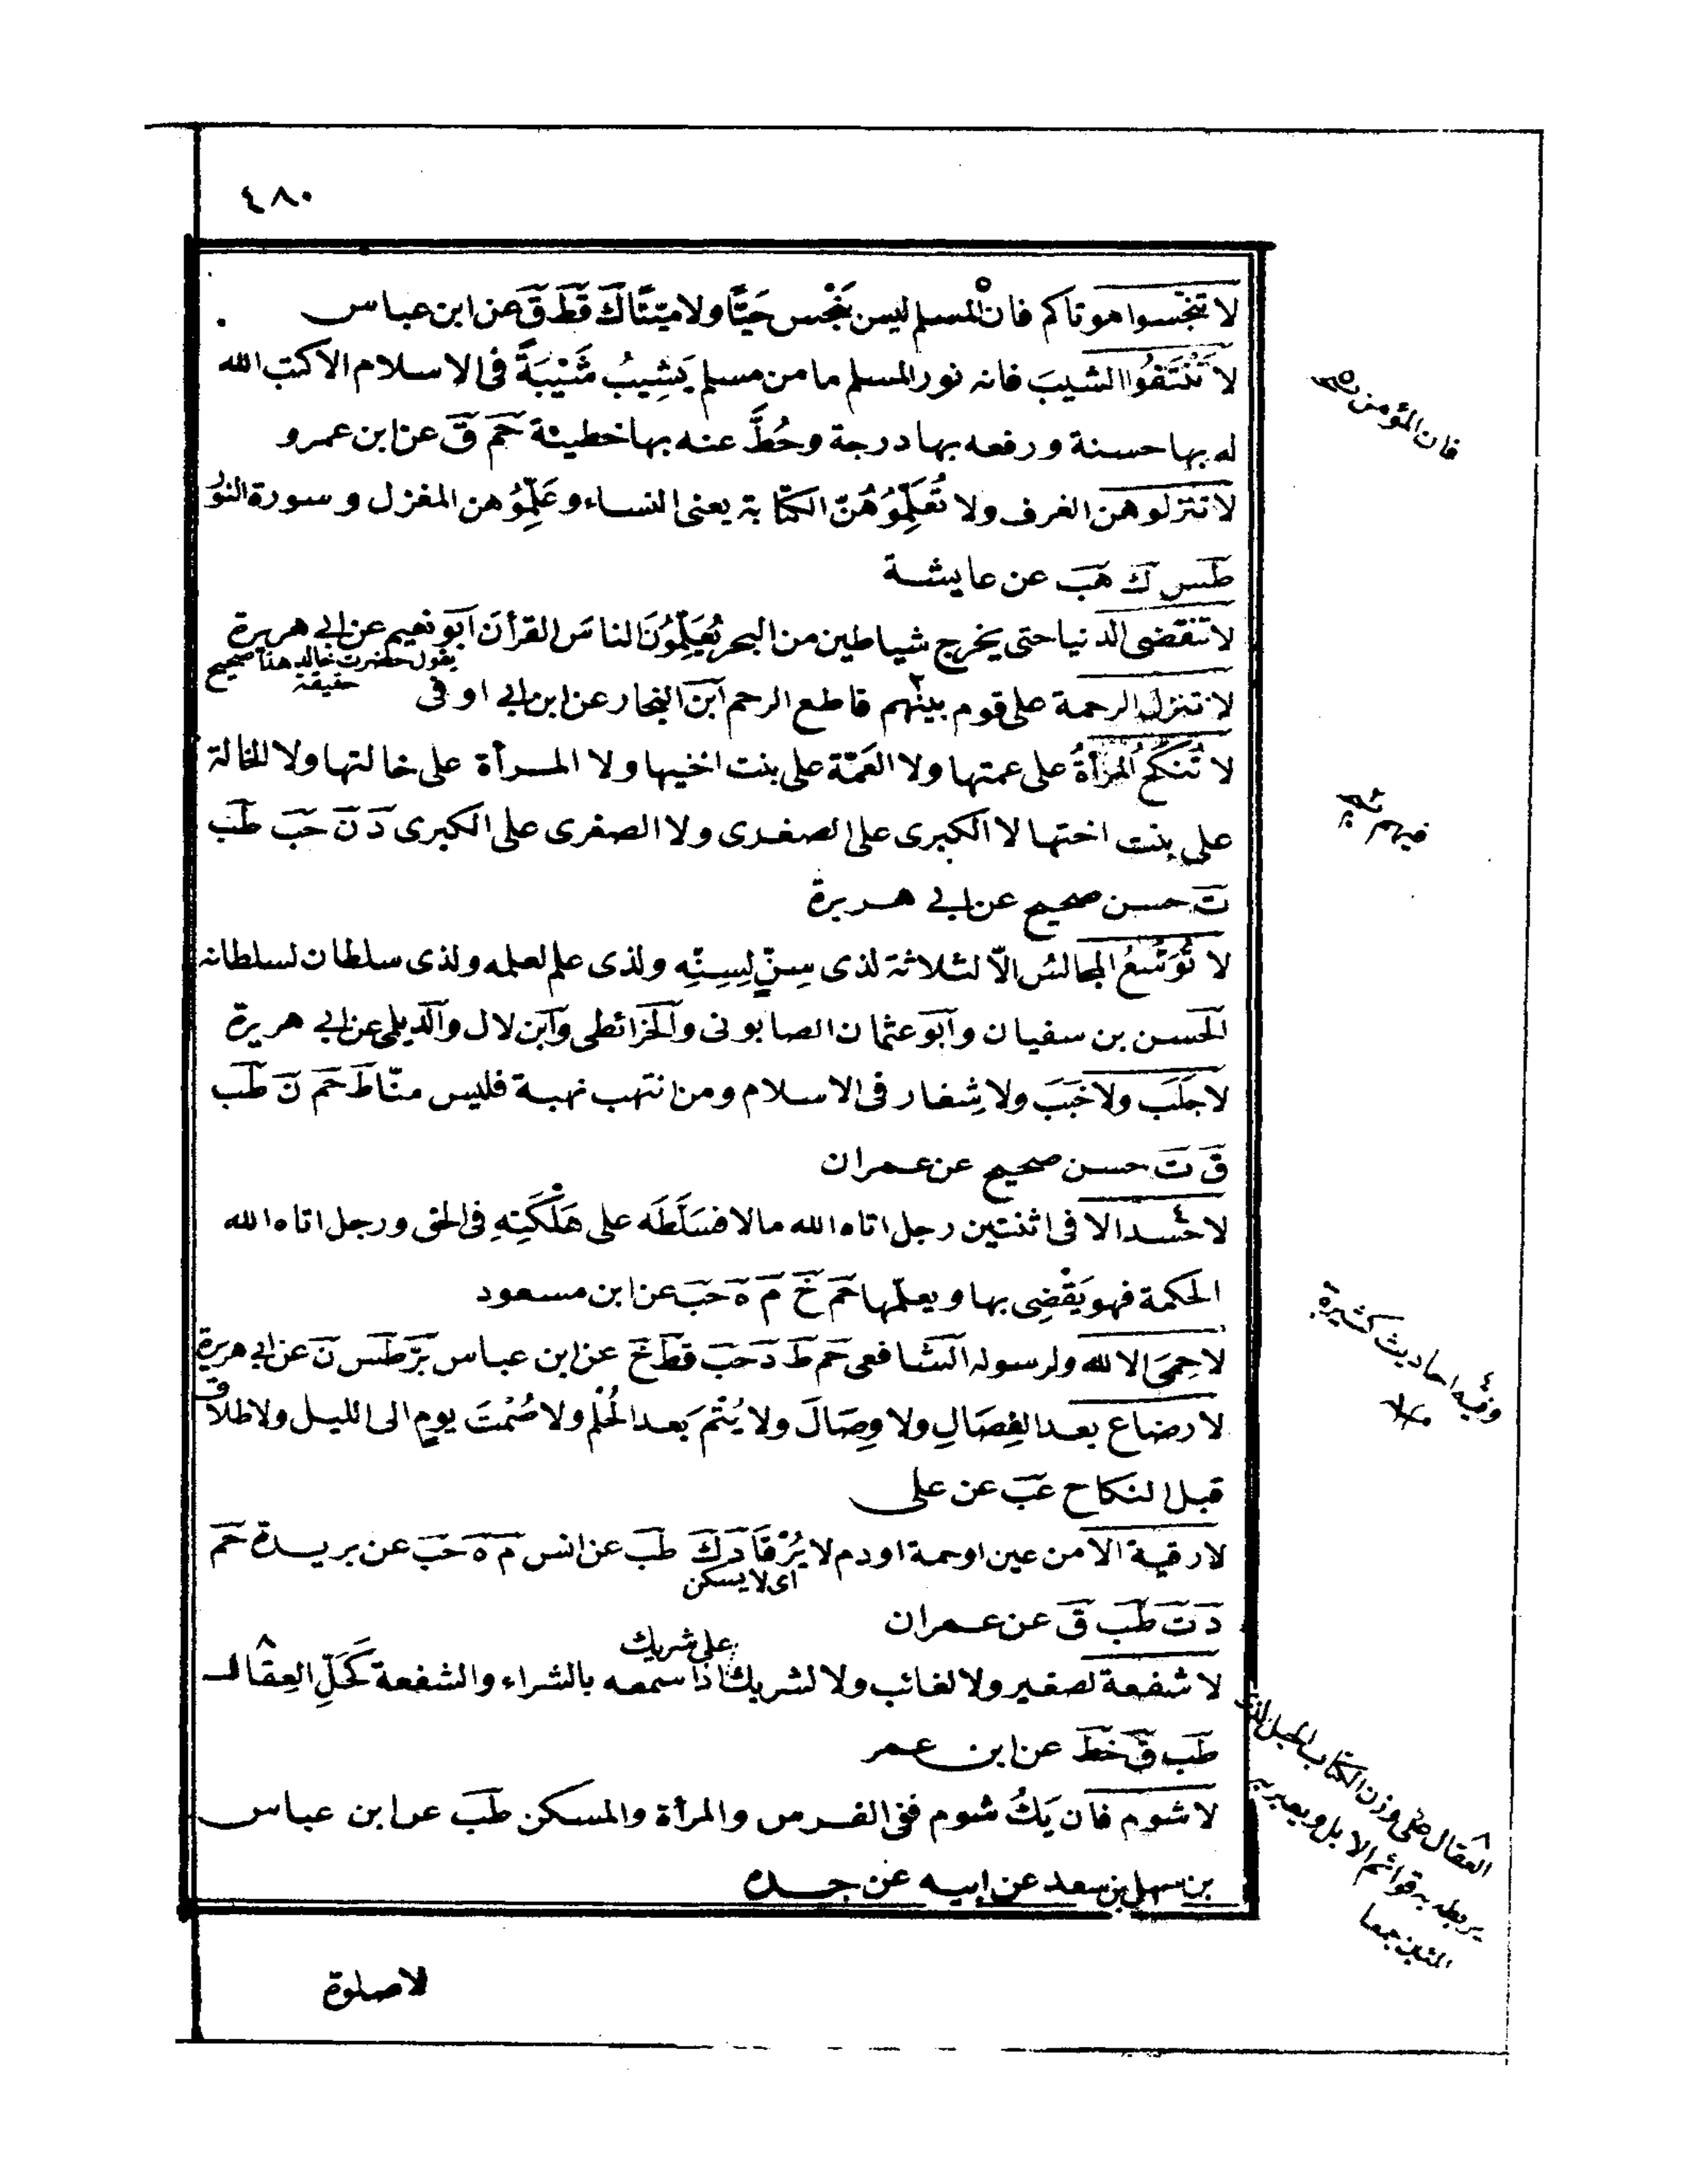 ٤٨٠
لا تنجّسوا موتاكم فان المسلم ليس بنجس حَيًّا ولا ميّتًا ك قط ق عن ابن عباس
لا تَنْتَفُوا الشيبَ فانه نور المسلم ما من مسلم يَشِيبُ شَيْبَةً فى الاسلام الا كتب الله
له بها حسنة ورفعه بها درجة وحُطَّ عنه بها خطيئة حم ق عن ابن عمرو
لا تنزلوهن الغرف ولا تُعَلِّمُوهُنّ الكتابة يعنى النساء وعَلِّمُوهن المغزل وسورة النور
طس ك هب عن عايشة
لا تنقضى الدنيا حتى يخرج شياطين من البحر يُعَلِّمُونَ الناسَ القرأنَ ابو نعيم عن ابى هريرة
يقول حضرت خالد هذا صحيح
حقيقة
لا تنزل الرحمة على قوم بينهم قاطع الرحم ابن النجار عن ابن ابى اوفى
لا تُنكَحُ المرأةُ على عمتها ولا العَمّة على بنت اخيها ولا المرأة على خالتها ولا الخالة
على بنت اختها لا الكبرى على الصغرى ولا الصغرى على الكبرى د ن حب طب
ت حسن صحيح عن ابى هريرة
لا تُوَسَّعُ المجالسُ الّا لثلاثة لذى سِنٍّ لِسِنِّه ولذى علم لعلمه ولذى سلطان لسلطانه
الحسن بن سفيان وابو عثمان الصابونى والخرائطى وابن لال والديلمى عن ابى هريرة
لا جَلَبَ ولا جَنَبَ ولا شِغار فى الاسلام ومن انتهب نهبة فليس منّا ط حم ن طب
ق ت حسن صحيح عن عمران
لا حسد الا فى اثنتين رجل اتاه الله مالا فسَلَّطَه على هَلَكَتِهِ فى الحق ورجل اتاه الله
الحكمة فهو يَقْضِى بها ويعلّمها حم خ م ه حب عن ابن مسعود
لا حِمَى الا لله ولرسوله الشافعى حم ط د حب قط خ عن ابن عباس بز طس ن عن ابى هريرة
لا رضاع بعد الفِصَالِ ولا وِصَالَ ولا يُتْمَ بَعد الحُلْم ولا صُمْتَ يومٍ الى الليل ولا طلاق
قبل النكاح عب عن على
لا رقية الا من عين او حمة او دم لا يَرْقَأ د ك طب عن انس م ه حب عن بريدة حم
اى لا يسكن
د ت طب ق عن عمران
على شريك
لا شفعة لصغير ولا لغائب ولا لشريك اذا سمعه بالشراء والشفعة كَحَلِّ العِقَال
طب ق خط عن ابن عمر
لا شوم فان يَكُ شوم ففى الفرس والمرأة والمسكن طب عن ابن عباس
بن سهل بن سعد عن ابيه عن جده
فان المؤمن
فيهم
وفيه احاديث كثيرة
العقال على وزن الكتاب الحبل الذى
يربطه به قوائم الابل
لا صلوة